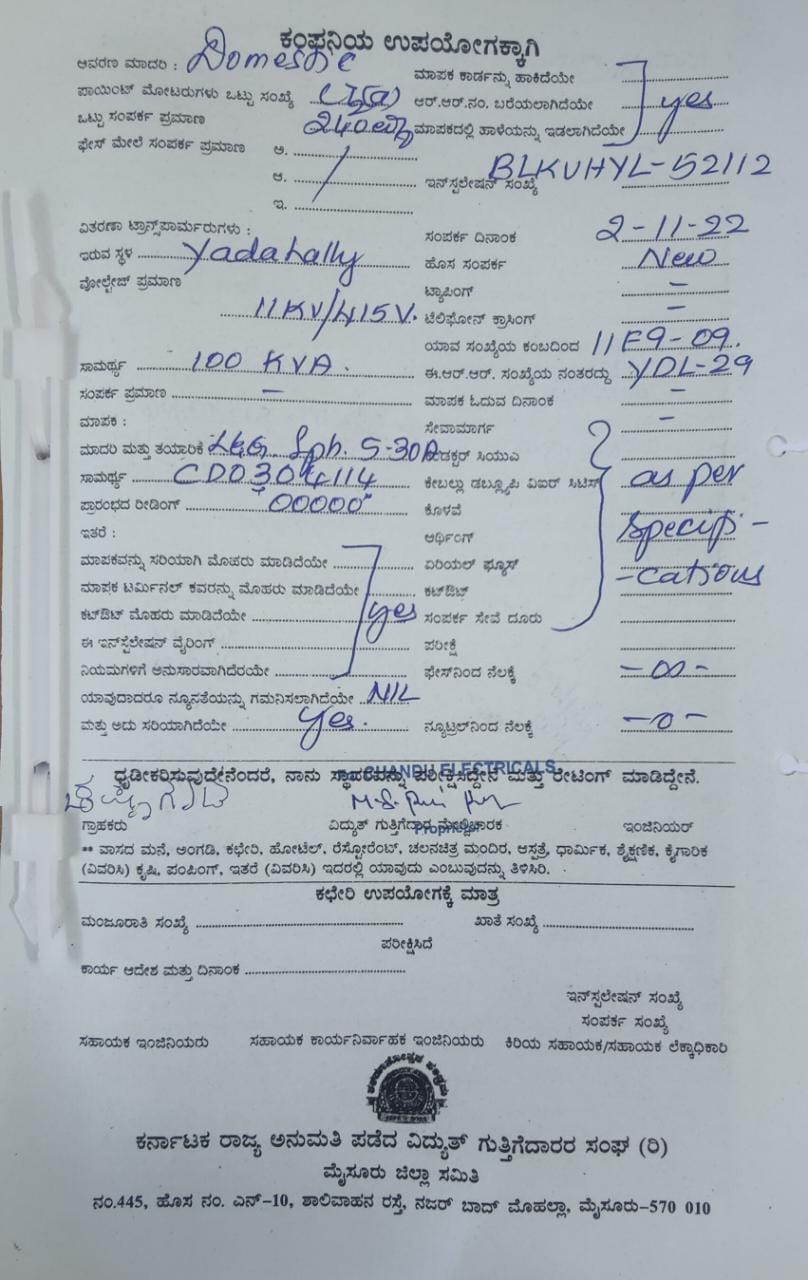 ಕಂಪನಿಯ ಉಪಯೋಗಕ್ಕಾಗಿ
ಆವರಣ ಮಾದರಿ : Domestic ಮಾಪಕ ಕಾರ್ಡನ್ನು ಹಾಕಿದೆಯೇ
ಪಾಯಿಂಟ್ ಮೋಟರುಗಳು ಒಟ್ಟು ಸಂಖ್ಯೆ ಆರ್.ಆರ್.ನಂ. ಬರೆಯಲಾಗಿದೆಯೇ yes
ಒಟ್ಟು ಸಂಪರ್ಕ ಪ್ರಮಾಣ 240 ಮಾಪಕದಲ್ಲಿ ಹಾಳೆಯನ್ನು ಇಡಲಾಗಿದೆಯೇ
ಫೇಸ್ ಮೇಲೆ ಸಂಪರ್ಕ ಪ್ರಮಾಣ ಅ.
ಆ. ಇನ್‌ಸ್ಟಲೇಷನ್ ಸಂಖ್ಯೆ BLKUHYL-52112
ಇ.
ವಿತರಣಾ ಟ್ರಾನ್ಸ್‌ಪಾರ್ಮರುಗಳು : ಸಂಪರ್ಕ ದಿನಾಂಕ 2-11-22
ಇರುವ ಸ್ಥಳ Yadahally ಹೊಸ ಸಂಪರ್ಕ New
ವೋಲ್ಟೇಜ್ ಪ್ರಮಾಣ ಟ್ಯಾಪಿಂಗ್ -
11KV/415V. ಟೆಲಿಫೋನ್ ಕ್ರಾಸಿಂಗ್ -
ಯಾವ ಸಂಖ್ಯೆಯ ಕಂಬದಿಂದ 11F9-09.
ಸಾಮರ್ಥ್ಯ 100 KVA. ಈ.ಆರ್.ಆರ್. ಸಂಖ್ಯೆಯ ನಂತರದ್ದು YDL-29
ಸಂಪರ್ಕ ಪ್ರಮಾಣ - ಮಾಪಕ ಓದುವ ದಿನಾಂಕ -
ಮಾಪಕ : ಸೇವಾಮಾರ್ಗ -
ಮಾದರಿ ಮತ್ತು ತಯಾರಿಕೆ L&G 1ph. 5-30A ಸಿಯುಎ
ಸಾಮರ್ಥ್ಯ CD0304114 ಕೇಬಲ್ಲು ಡಬ್ಲ್ಯೂಪಿ ವಿಐರ್ ಸಿಟಿಸ್ as per
ಪ್ರಾರಂಭದ ರೀಡಿಂಗ್ 00000 ಕೊಳವೆ
ಇತರೆ : ಆರ್ಥಿಂಗ್ specifi-
ಮಾಪಕವನ್ನು ಸರಿಯಾಗಿ ಮೊಹರು ಮಾಡಿದೆಯೇ ಏರಿಯಲ್ ಫ್ಯೂಸ್
ಮಾಪಕ ಟರ್ಮಿನಲ್ ಕವರನ್ನು ಮೊಹರು ಮಾಡಿದೆಯೇ ಕಟ್‌ಔಟ್ -cations
ಕಟ್‌ಔಟ್ ಮೊಹರು ಮಾಡಿದೆಯೇ yes ಸಂಪರ್ಕ ಸೇವೆ ದೂರು
ಈ ಇನ್‌ಸ್ಟೆಲೇಷನ್ ವೈರಿಂಗ್ ಪರೀಕ್ಷೆ
ನಿಯಮಗಳಿಗೆ ಅನುಸಾರವಾಗಿದೆರಯೇ ಫೇಸ್‌ನಿಂದ ನೆಲಕ್ಕೆ -∞-
ಯಾವುದಾದರೂ ನ್ಯೂನತೆಯನ್ನು ಗಮನಿಸಲಾಗಿದೆಯೇ NIL
ಮತ್ತು ಅದು ಸರಿಯಾಗಿದೆಯೇ Yes. ನ್ಯೂಟ್ರಲ್‌ನಿಂದ ನೆಲಕ್ಕೆ -0-
CHANDU ELECTRICALS
ಧೃಡೀಕರಿಸುವುದೇನೆಂದರೆ, ನಾನು ಸ್ಥಾವರವನ್ನು ಪರೀಕ್ಷಿಸಿದ್ದೇನೆ ಮತ್ತು ರೇಟಿಂಗ್ ಮಾಡಿದ್ದೇನೆ.
ಗ್ರಾಹಕರು ವಿದ್ಯುತ್ ಗುತ್ತಿಗೆದಾರ ಮೇಲ್ವಿಚಾರಕ ಇಂಜಿನಿಯರ್
Proprietor
** ವಾಸದ ಮನೆ, ಅಂಗಡಿ, ಕಛೇರಿ, ಹೋಟೆಲ್, ರೆಸ್ಟೋರೆಂಟ್, ಚಲನಚಿತ್ರ ಮಂದಿರ, ಆಸ್ಪತ್ರೆ, ಧಾರ್ಮಿಕ, ಶೈಕ್ಷಣಿಕ, ಕೈಗಾರಿಕೆ
(ವಿವರಿಸಿ) ಕೃಷಿ, ಪಂಪಿಂಗ್, ಇತರೆ (ವಿವರಿಸಿ) ಇದರಲ್ಲಿ ಯಾವುದು ಎಂಬುವುದನ್ನು ತಿಳಿಸಿರಿ.
ಕಛೇರಿ ಉಪಯೋಗಕ್ಕೆ ಮಾತ್ರ
ಮಂಜೂರಾತಿ ಸಂಖ್ಯೆ ಖಾತೆ ಸಂಖ್ಯೆ
ಪರೀಕ್ಷಿಸಿದೆ
ಕಾರ್ಯ ಆದೇಶ ಮತ್ತು ದಿನಾಂಕ
ಇನ್‌ಸ್ಪಲೇಷನ್ ಸಂಖ್ಯೆ
ಸಂಪರ್ಕ ಸಂಖ್ಯೆ
ಸಹಾಯಕ ಇಂಜಿನಿಯರು ಸಹಾಯಕ ಕಾರ್ಯನಿರ್ವಾಹಕ ಇಂಜಿನಿಯರು ಕಿರಿಯ ಸಹಾಯಕ/ಸಹಾಯಕ ಲೆಕ್ಕಾಧಿಕಾರಿ
ಕರ್ನಾಟಕ ರಾಜ್ಯ ಅನುಮತಿ ಪಡೆದ ವಿದ್ಯುತ್ ಗುತ್ತಿಗೆದಾರರ ಸಂಘ (ರಿ)
ಮೈಸೂರು ಜಿಲ್ಲಾ ಸಮಿತಿ
ನಂ.445, ಹೊಸ ನಂ. ಎನ್-10, ಶಾಲಿವಾಹನ ರಸ್ತೆ, ನಜರ್ ಬಾದ್ ಮೊಹಲ್ಲಾ, ಮೈಸೂರು-570 010